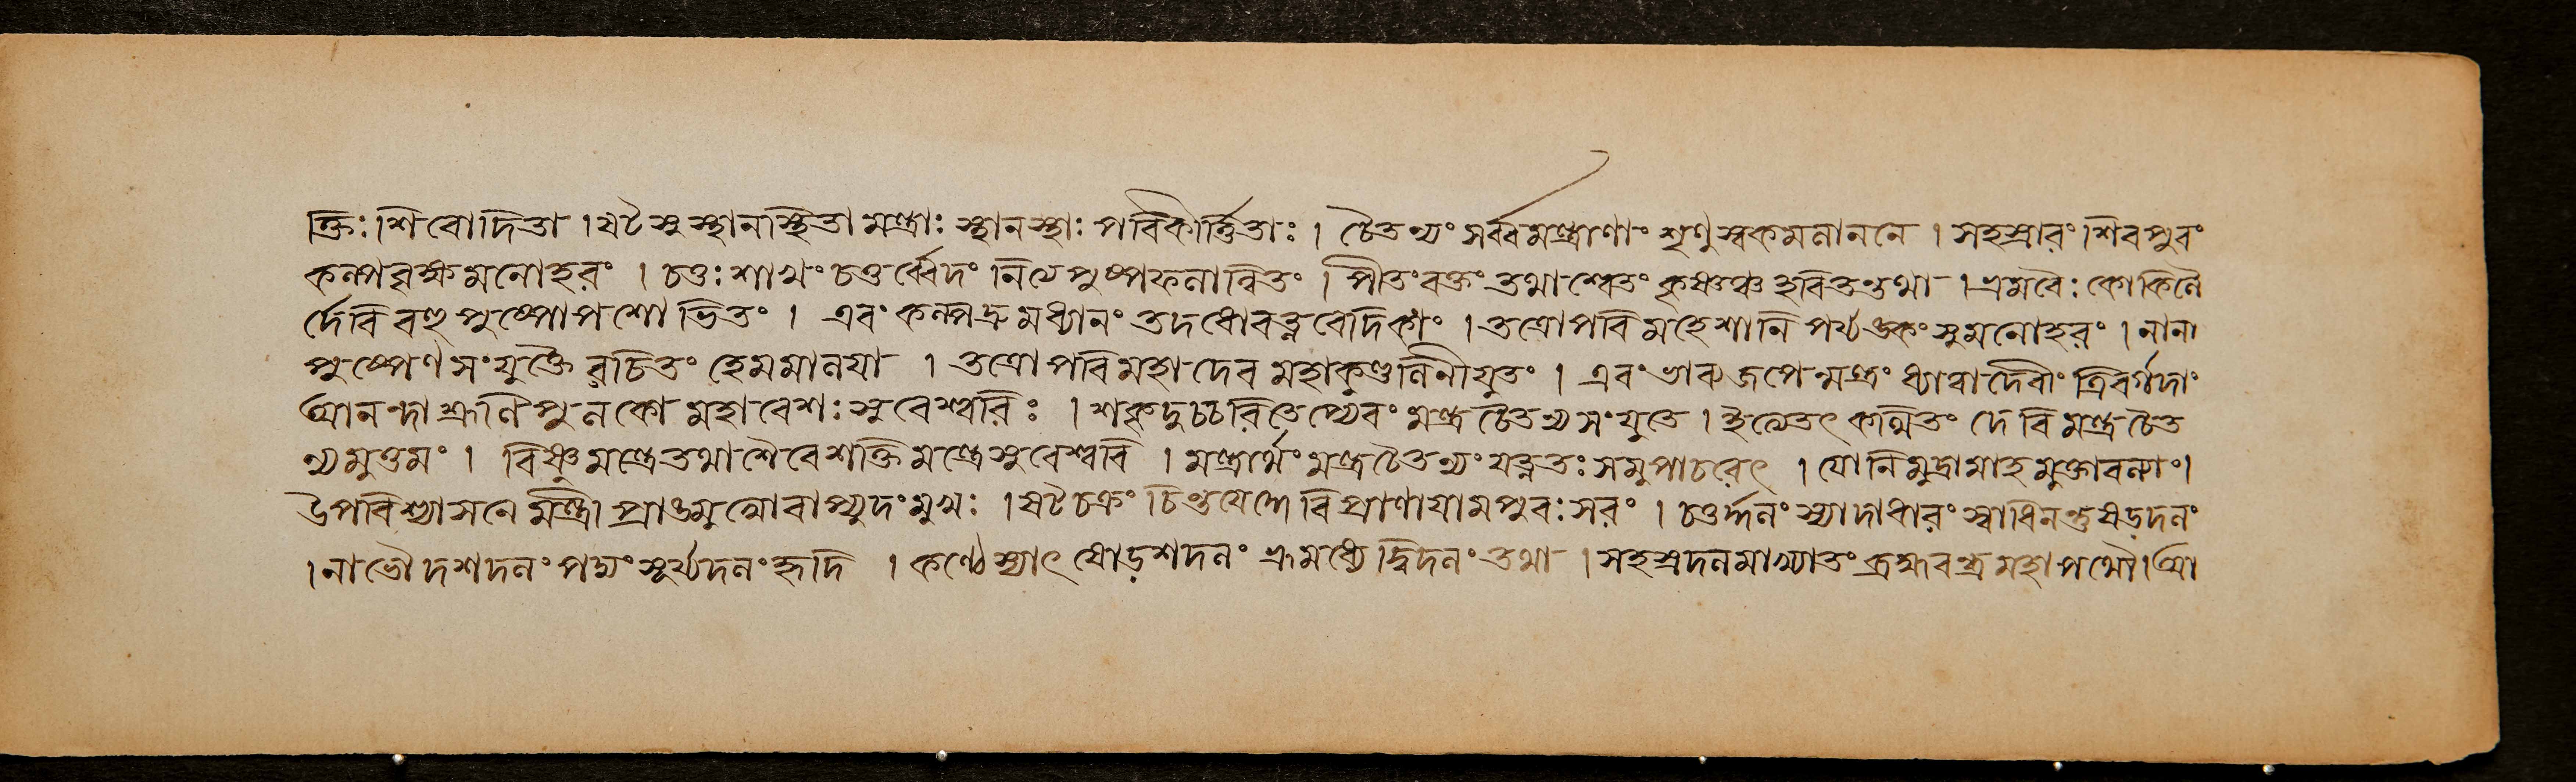 ক্তিঃ।শিবোদিতা।ষটৈসুস্থানস্থিতা মন্ত্রাঃ স্থানস্থাঃ পরিকীর্ত্তিতাঃ। চৈতন্যং সর্ব্বমন্ত্রাণাং শৃণুস্বকমলাননে। সহস্রারং।শিবপুরং
কল্পবৃক্ষমনোহরং। চতুঃশাখং চতুর্ব্বেদং নিত্যপুষ্পফলান্বিতং। পীতংরক্তং তথাশ্বেতং কৃষ্ণঞ্চ হরিতন্তুথা।এমরৈঃ কোকিলৈ
র্দেবি বহুপুষ্পোপশোভিতং। এবং কল্পদ্রুমধ্যানং তদধোরত্নবেদিকাং। তত্রোপরি মহেশানি পর্য্যঙ্কং সুমনোহরং। নানা
পুষ্পেণ সংযুক্তৈ রচিতং হেমমালয়া। তত্রোপরি মহাদেব মহাকুণ্ডলিনীযুতং। এবং ভাব্য জপেন্মন্ত্রং ধ্যাত্বাদেবীং ত্রিবর্গদাং
আনন্দাশ্রূণি পুলকো মহাবেশঃ সুরেশ্বরিঃ। শকৃদুচ্চরিতেপ্যেবং মন্ত্র চৈতন্য সংযুতে। ইত্যেতৎ কথিতং দেবি মন্ত্র চৈত
ন্যমুত্তমং। বিষ্ণুমন্ত্রেতথাশৈবেশক্তিমন্ত্রেসুরেশ্বরি। মন্ত্রার্থং মন্ত্র চৈতন্যং যত্নতঃ সমুপাচরেৎ। যোনিমুদ্রামাহ মুক্তাবল্যাং।
উপবিশ্যাসনে মন্ত্রী প্রাঙমুখোবাপ্যুদংমুখঃ। ষটৈচক্রং চিন্তয়েদ্দেবি প্রাণায়ামপুরঃসরং। চতুর্দ্দলং স্যাদাধারং স্বাধিলন্তুষড়্দলং
।নাভৌ দশদলং পদ্মং সূর্য্যদলং হৃদি। কণ্ঠে স্যাৎ ষোড়শদলং ভ্রূমধ্যে দ্বিদলং তথা। সহস্রদলমাখ্যাতং ব্রহ্মরন্ধ্র মহাপথৌ।আ